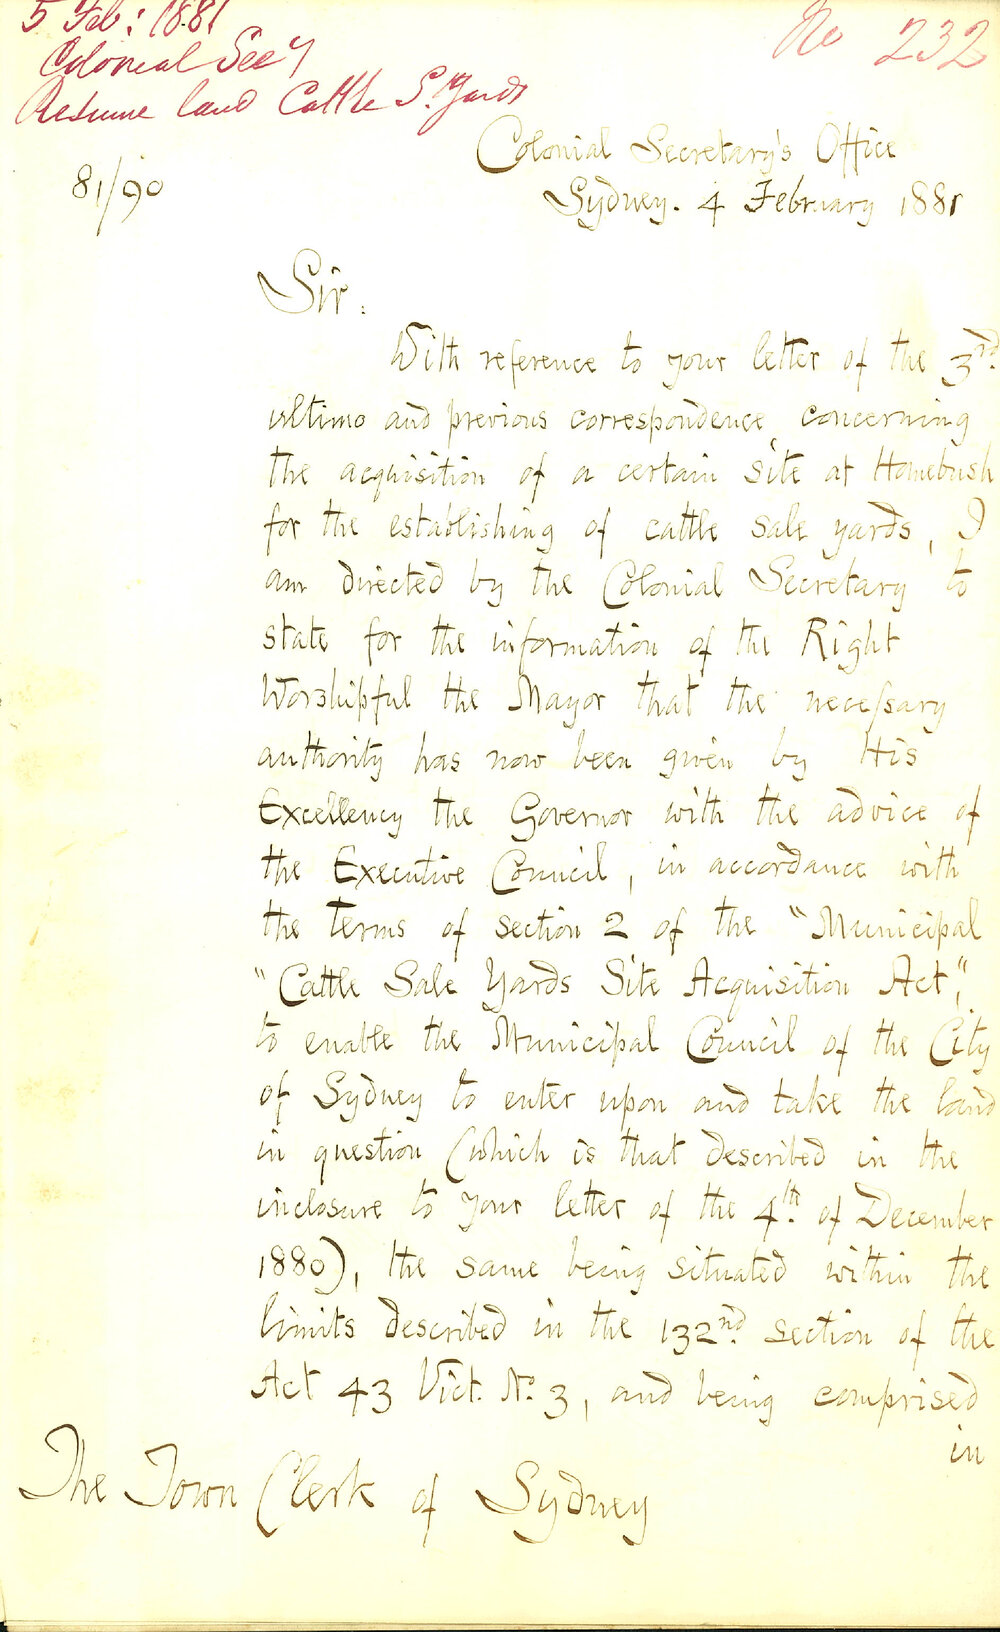 5 Feb: 1881
Colonial Secy
Resume land Cattle S. Yards
No 232
Colonial Secretary's Office
Sydney. 4 February 1881
81/90
Sir.
With reference to your letter of the 3rd.
ultimo and previous correspondence concerning
the acquisition of a certain site at Homebush
for the establishing of cattle sale yards, I
am directed by the Colonial Secretary to
state for the information of the Right
Worshipful the Mayor that the necessary
authority has now been given by His
Excellency the Governor with the advice of
the Executive Council, in accordance with
the terms of section 2 of the "Municipal
"Cattle Sale Yards Site Acquisition Act",
to enable the Municipal Council of the City
of Sydney to enter upon and take the land
in question (which is that described in the
inclosure to your letter of the 4th. of December
1880), the same being situated within the
limits described in the 132nd. section of the
Act 43 Vict. No. 3, and being comprised
in
The Town Clerk of Sydney